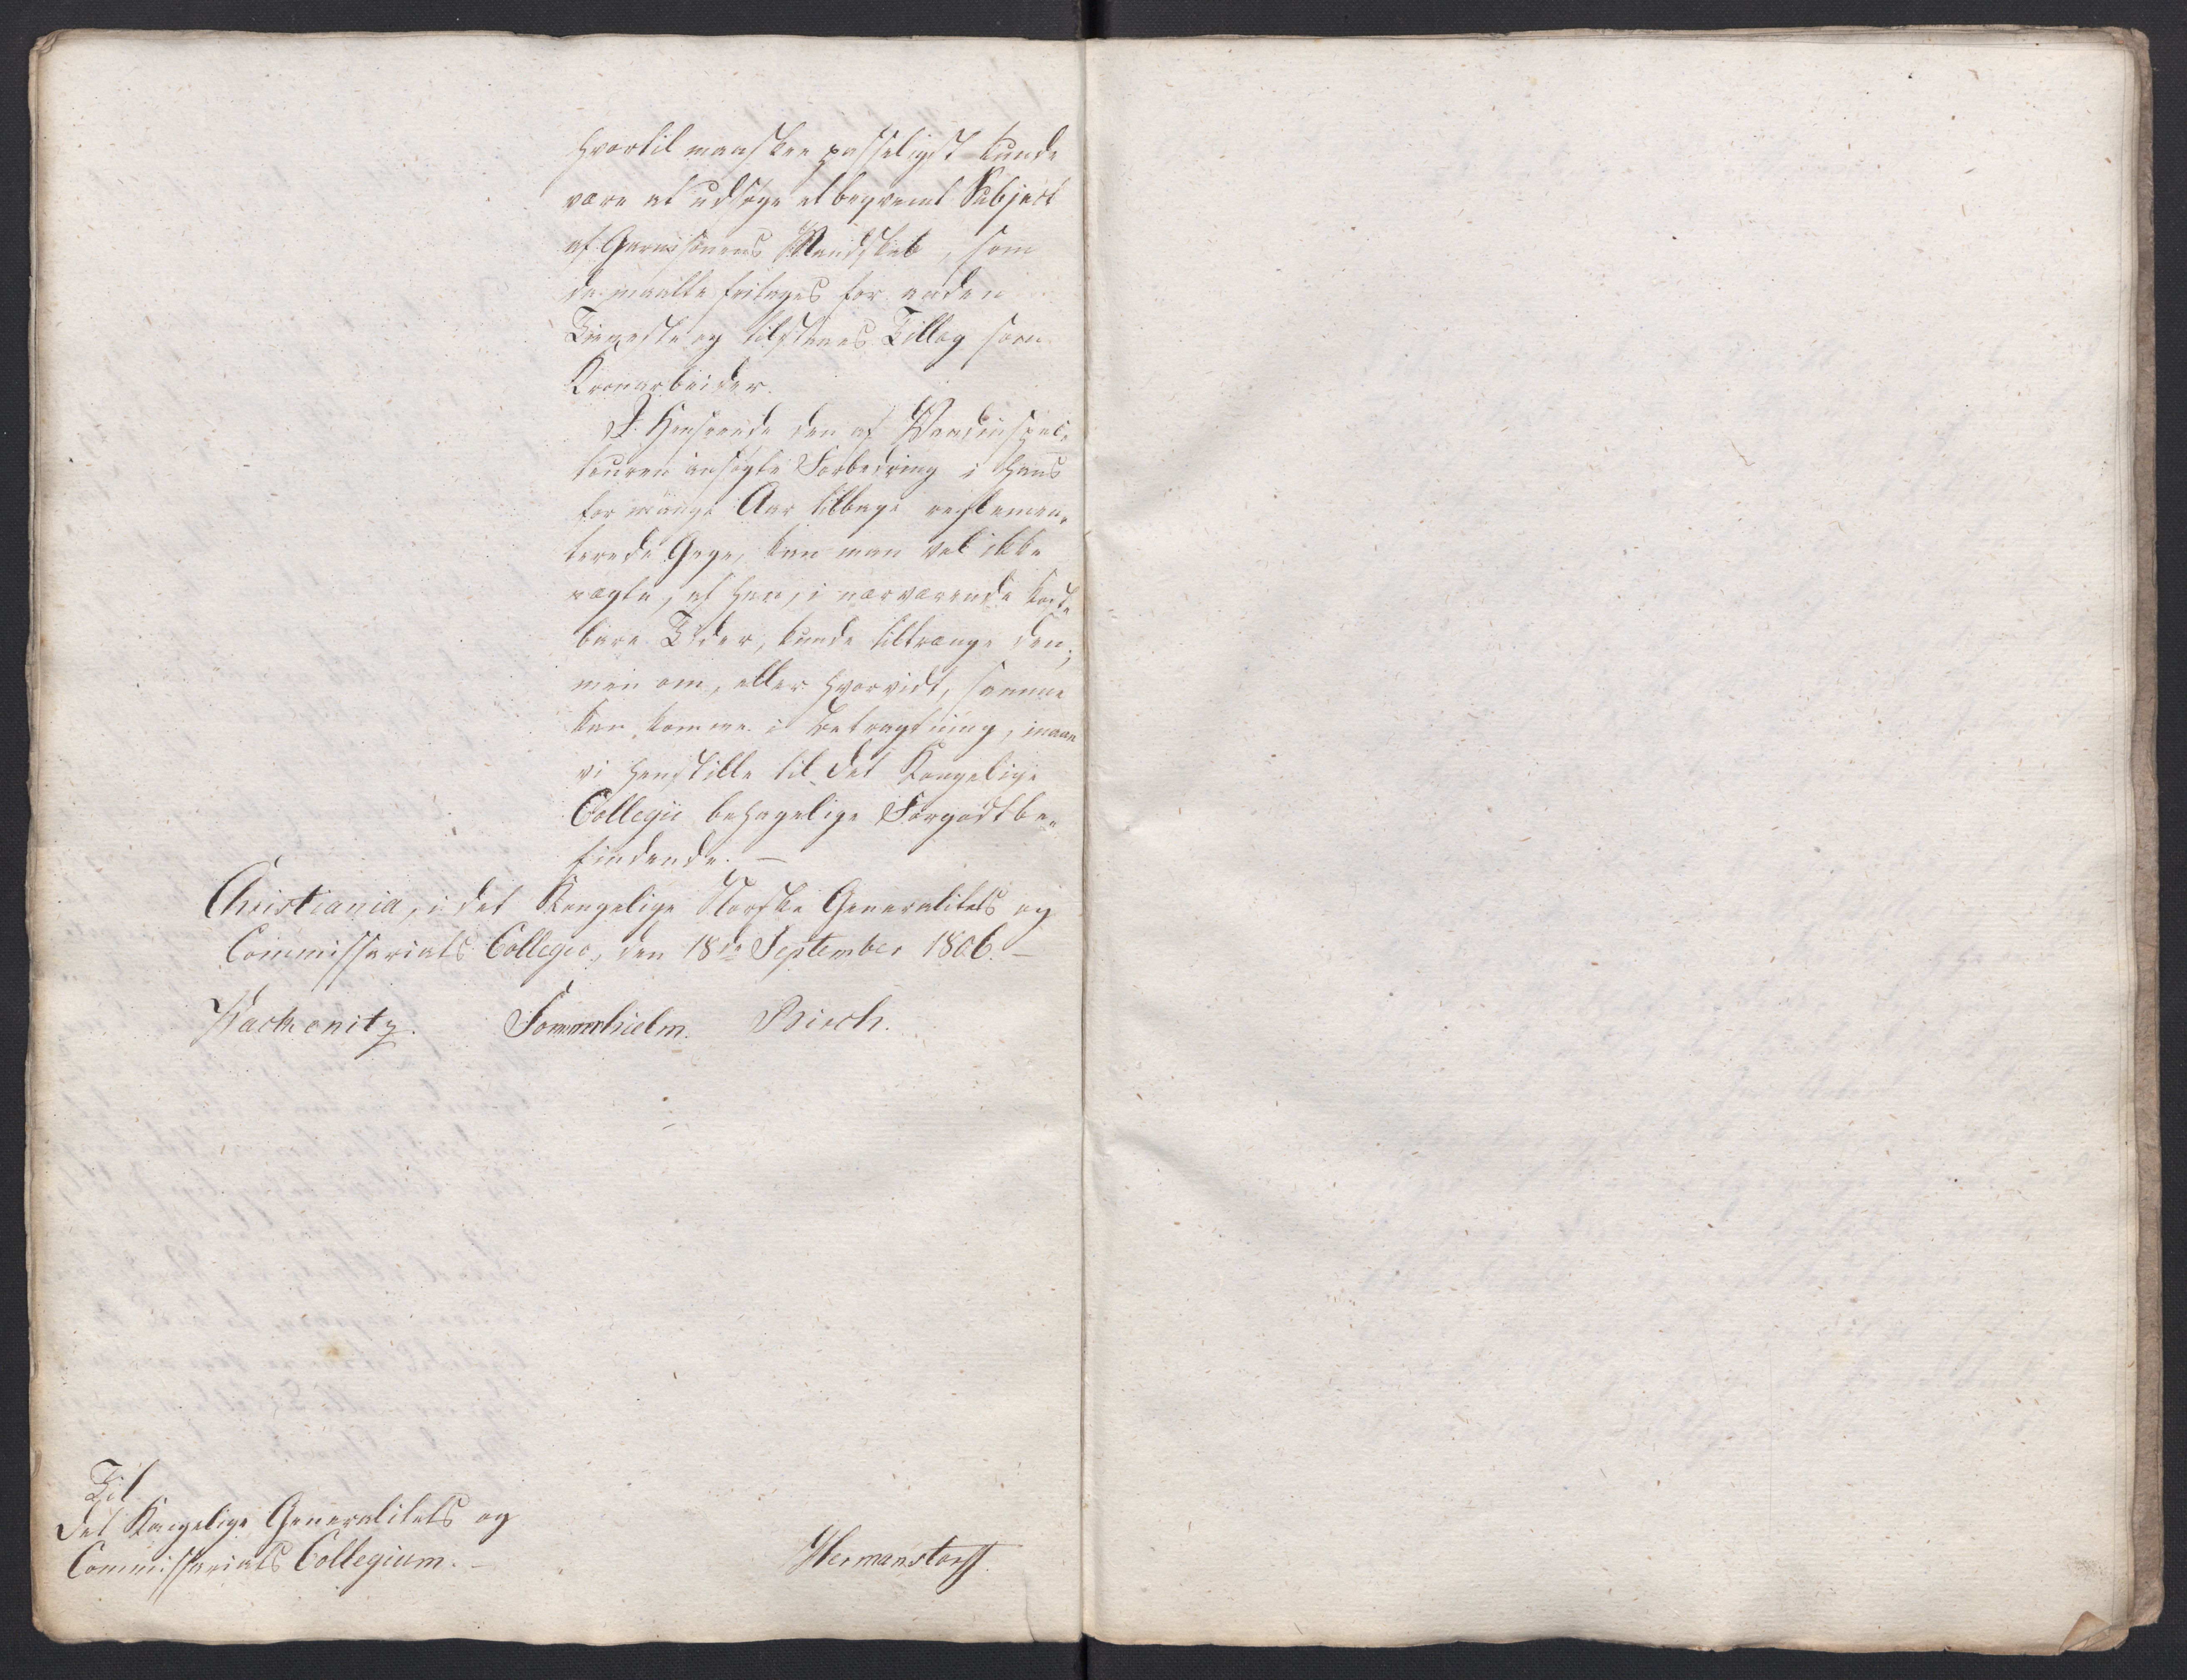 hvortil maaskee passeligst kunde
være at udsøge et beqvemt Subject
af Garnisonens Mandskab, som
da maatte fritages for anden
Tieneste og tilstaaes Tillæg som
Kronarbeider.
I Henseende den af Vandinspec-
teuren ansøgte Forbedring i hans
for mange Aar tilbage reglemen-
terede Gage, kan man vel ikke
nægte, at han, i nærværende kost-
bare Tider, kunde tiltrænge den;
men om, eller hvorvidt, samme
kan komme i Betragtning, maae
vi henstille til det Kongelige
Collegii behagelige Forgodtbe-
findende. —
Christiania, i det Kongelige Norske Generalitets og
Commissariats Collegio, den 18de September 1806. —
Wackenitz. Sommerhielm. Birch.
Til
Det Kongelige Generalitets og
Commissariats Collegium. —
Hermanstorff.